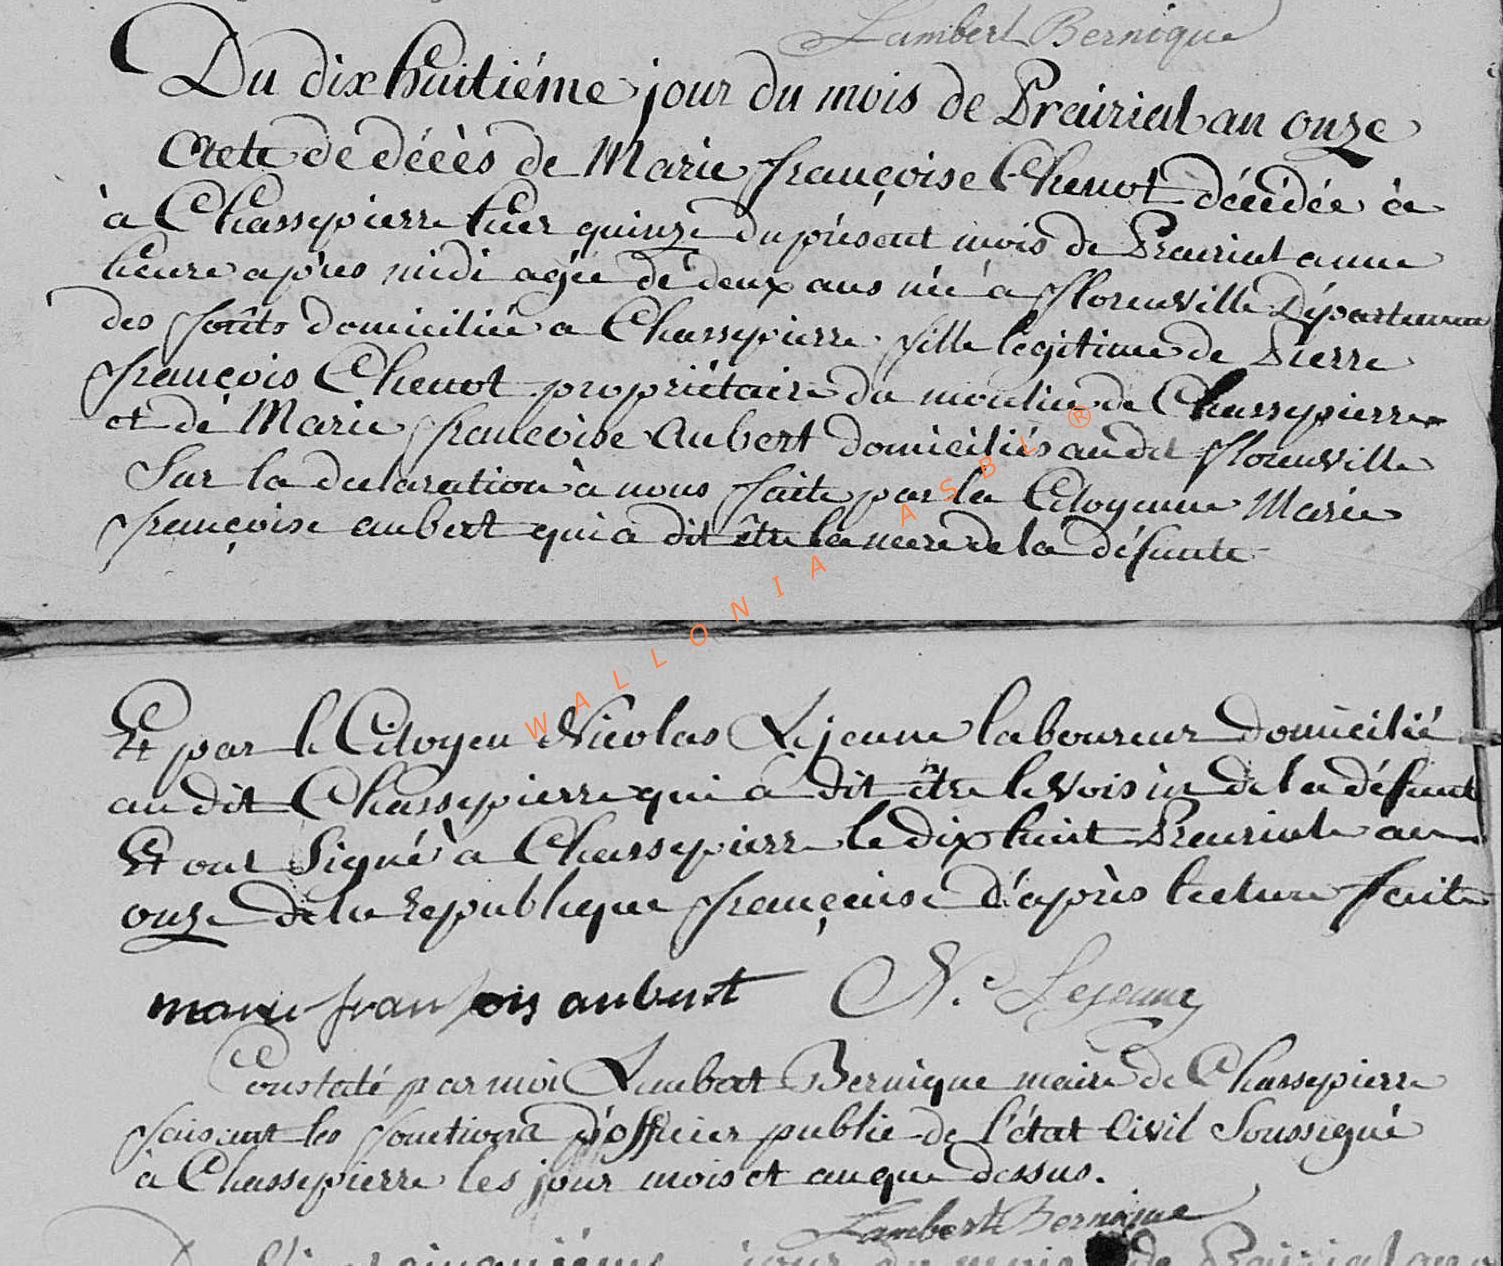 Lambert Bernique
Du dix huitiéme jour du mois de Prairial an onze
Acte de décès de Marie françoise Chenot décédée à
à Chassepierre hier quinze du présent mois de Prairial a une
heure après midi agée de deux ans née à florenville Département
des forêts domiciliée a Chassepierre fille légitime de Pierre
françois Chenot propriétaire du moulin de Chassepierre
et de Marie françoise Aubert domiciliés au dit florenville
Sur la declaration à nous faite par la Citoyenne Marie
françoise aubert qui a dit être la mere de la défunte
Et par le Citoyen Nicolas Lejeune laboureur domicilié
au dit Chassepierre qui a dit être le voisin de la défunte
Et ont Signé à Chassepierre le dix huit Prairial an
onze de la republique françoise d'après lecture faite
marie fransois aubert N. Lejeune
Constaté par moi Lambert Bernique maire de Chassepierre
faisant les fonctions d'officier public de l'état Civil Soussigné
à Chassepierre les jour mois et an que dessus.
Lambert Bernique
jour du mois de Prairial an
WALLONIA ASBL ®